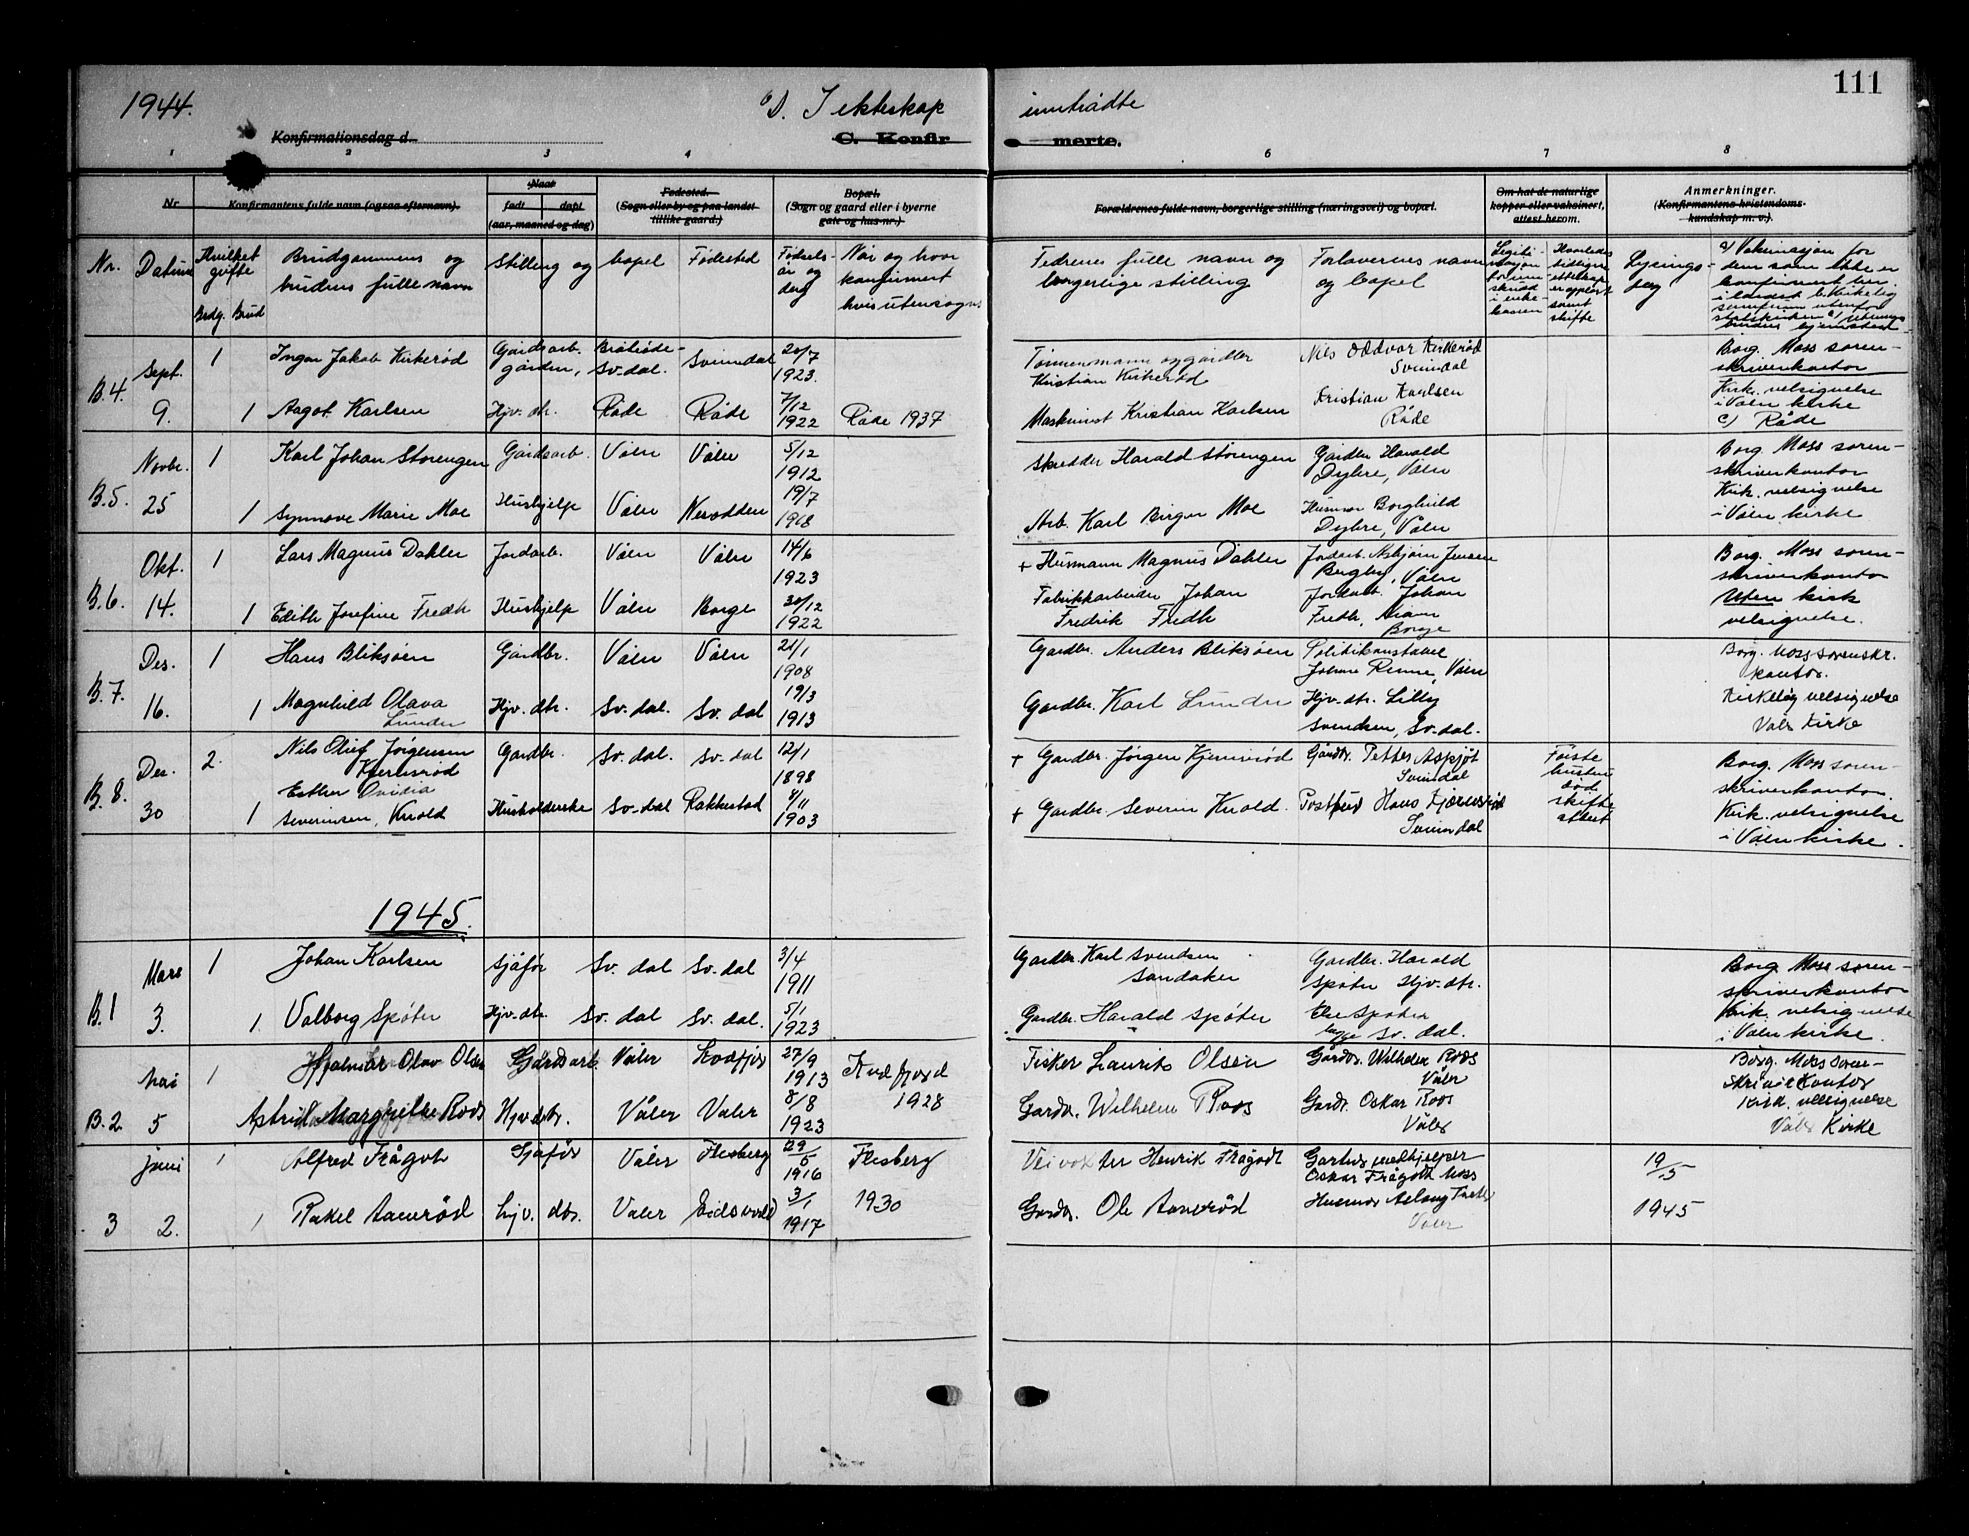 111
1944.
D. I ekteskap inntrådte
Konfirmationsdag d.
C. Konfirmerte.
1 2 3 4 6 7 8
Nr.
Konfirmantens fulde navn (ogsaa efternavn).
Naar
født døpt
(aar, maaned og dag)
Fødested.
(Sogn eller by og paa landet
tillike gaard.)
Bopæl.
(Sogn og gaard eller i byerne
gate og hus-nr.)
Forældrenes fulde navn, borgerlige stilling (næringsvei) og bopæl.
Om hat de naturlige
kopper eller vaksinert,
attest herom.
Anmerkninger.
(Konfirmantens kristendoms-
kundskap m. v.).
Nr. Datum
Hvilket
gifte
Brdg. Brud
Brudgommens og
brudens fulle navn
Stilling og bopel
Fødested
Fødsels-
år og
dag
Når og hvor
konfirmert
hvis utensogns
Fedrenes fulle navn og
borgerlige stilling
Forlovernes navn
og bopel
Lysings-
dag
a) Vaksinasjon for
dem som ikke er
konfirmert her
B.4. Sept. 9.
1 Ingar Jakob Kirkerød Gårdsarb. Bråtrøde-
gården, Sv.dal. Svinndal 20/7
1923.
Tømmermann og gårdbr
Kristian Kirkerød
Nils Oddvar Kirkerød
Svinndal
Borg. Moss soren-
skriverkontor
1 Aagot Karlsen Hjv. dtr. Råde Råde 7/12
1922 Råde 1937
Maskinist Kristian Karlsen
Kristian Karlsen
Råde
Kirk. velsignelse
i Våler kirke
c) Råde
B.5. Novbr. 25
1 Karl Johan Storengen Gårdsarb. Våler Våler 5/12
1912
Skredder Harald Storengen
Gårdbr. Harald
Dybre, Våler
Borg Moss soren-
skriverkontor
1 Synnøve Marie Moe Hushjelp Våler 19/7
1918
Arb. Karl Birger Moe
Husmor Borghild
Dybre, Våler
Kirk. velsignelse
i Våler kirke
B.6. Okt. 14.
1 Lars Magnus Dahler Jordarb. Våler Våler 14/6
1923
+ Husmann Magnus Dahler
Jordarb. Asbjørn Jensen
Bergby, Våler
Borg. Moss soren-
skriverkontor
1 Edith Josefine Fredh Hushjelp Våler Borge 30/12
1922
Fabrikkarbeider Johan
Fredrik Fredh
Jordarb. Johan
Fredh,
Borge
Uten kirk
velsignelse.
B.7. Des. 16.
1 Hans Bliksøen Gårdbr. Våler Våler 21/1
1908
Gårdbr. Anders Bliksøen
Politikonstabel
Johan Renne, Våler
Borg. Moss sorenskr.
kontor.
1 Magnhild Olava
Lunder Hjv. dtr. Sv. dal. Sv. dal 19/3
1913
Gårdbr. Karl Lunder
Hjv. dtr. Lilly
Svendsen, Sv.dal.
Kirkelig velsignelse
Våler kirke
B.8. Des. 30
2. Nils Oluf Jørgensen
Kjernsrød Gårdbr. Sv. dal Sv. dal 12/1
1898
+ Gårdbr. Jørgen Kjernsrød
Gårdbr. Petter Aspjøt
Svinndal
Første
hustru
død
skifte
attest
Borg. Moss soren-
skriverkontor.
1 Esther Ovidia
Severinsen, Knold Husholderske Sv. dal Rakkestad 8/11
1903
+ Gårdbr. Severin Knold.
Postbud Hans Kjernsrød
Svinndal
Kirk. velsignelse
i Våler kirke.
1945.
B.1 Mars 3.
1 Johan Karlsen Sjåfør Sv. dal Sv. dal 3/4
1911
Gårdbr. Karl Svendsen
Sandaker
Gårdbr. Harald
Spøter Hjv. dtr.
Borg. Moss soren-
skriverkontor
1. Valborg Spøter Hjv. dtr. Sv. dal Sv. dal. 5/1
1923
Gårdbr. Harald Spøter
Else Spøter
begge Sv. dal.
Kirk. velsignelse
i Våler kirke.
B.2 Mai 5
1 Hjalmar Olav Olsen Gårdsarb. Våler Kvæfjord 27/9
1913 Kvæfjord
1928
Fisker Laurits Olsen
Gårdbr. Wilhelm Roos
Våler
Borg. Moss soren-
skriverkontor
Astrid Margrethe Roos Hjv. dtr. Våler Våler 8/8
1923
Gårdbr. Wilhelm Roos
Gårdbr. Oskar Roos
Våler
Kirk. velsignelse
Våler Kirke
3 Juni 2.
1 Alfred Frågot Sjåfør Våler Flesberg 29/5
1916 Flesberg
Veivokter Henrik Frågodt
Gartner medhjelper
Oskar Frågodt Moss
19/5
1 Rakel Aanerød hjv. dtr. Våler Eidsvold 3/1
1917 1930
Gårdbr. Ole Aanerød
Husmor Aslaug
Våler
1945